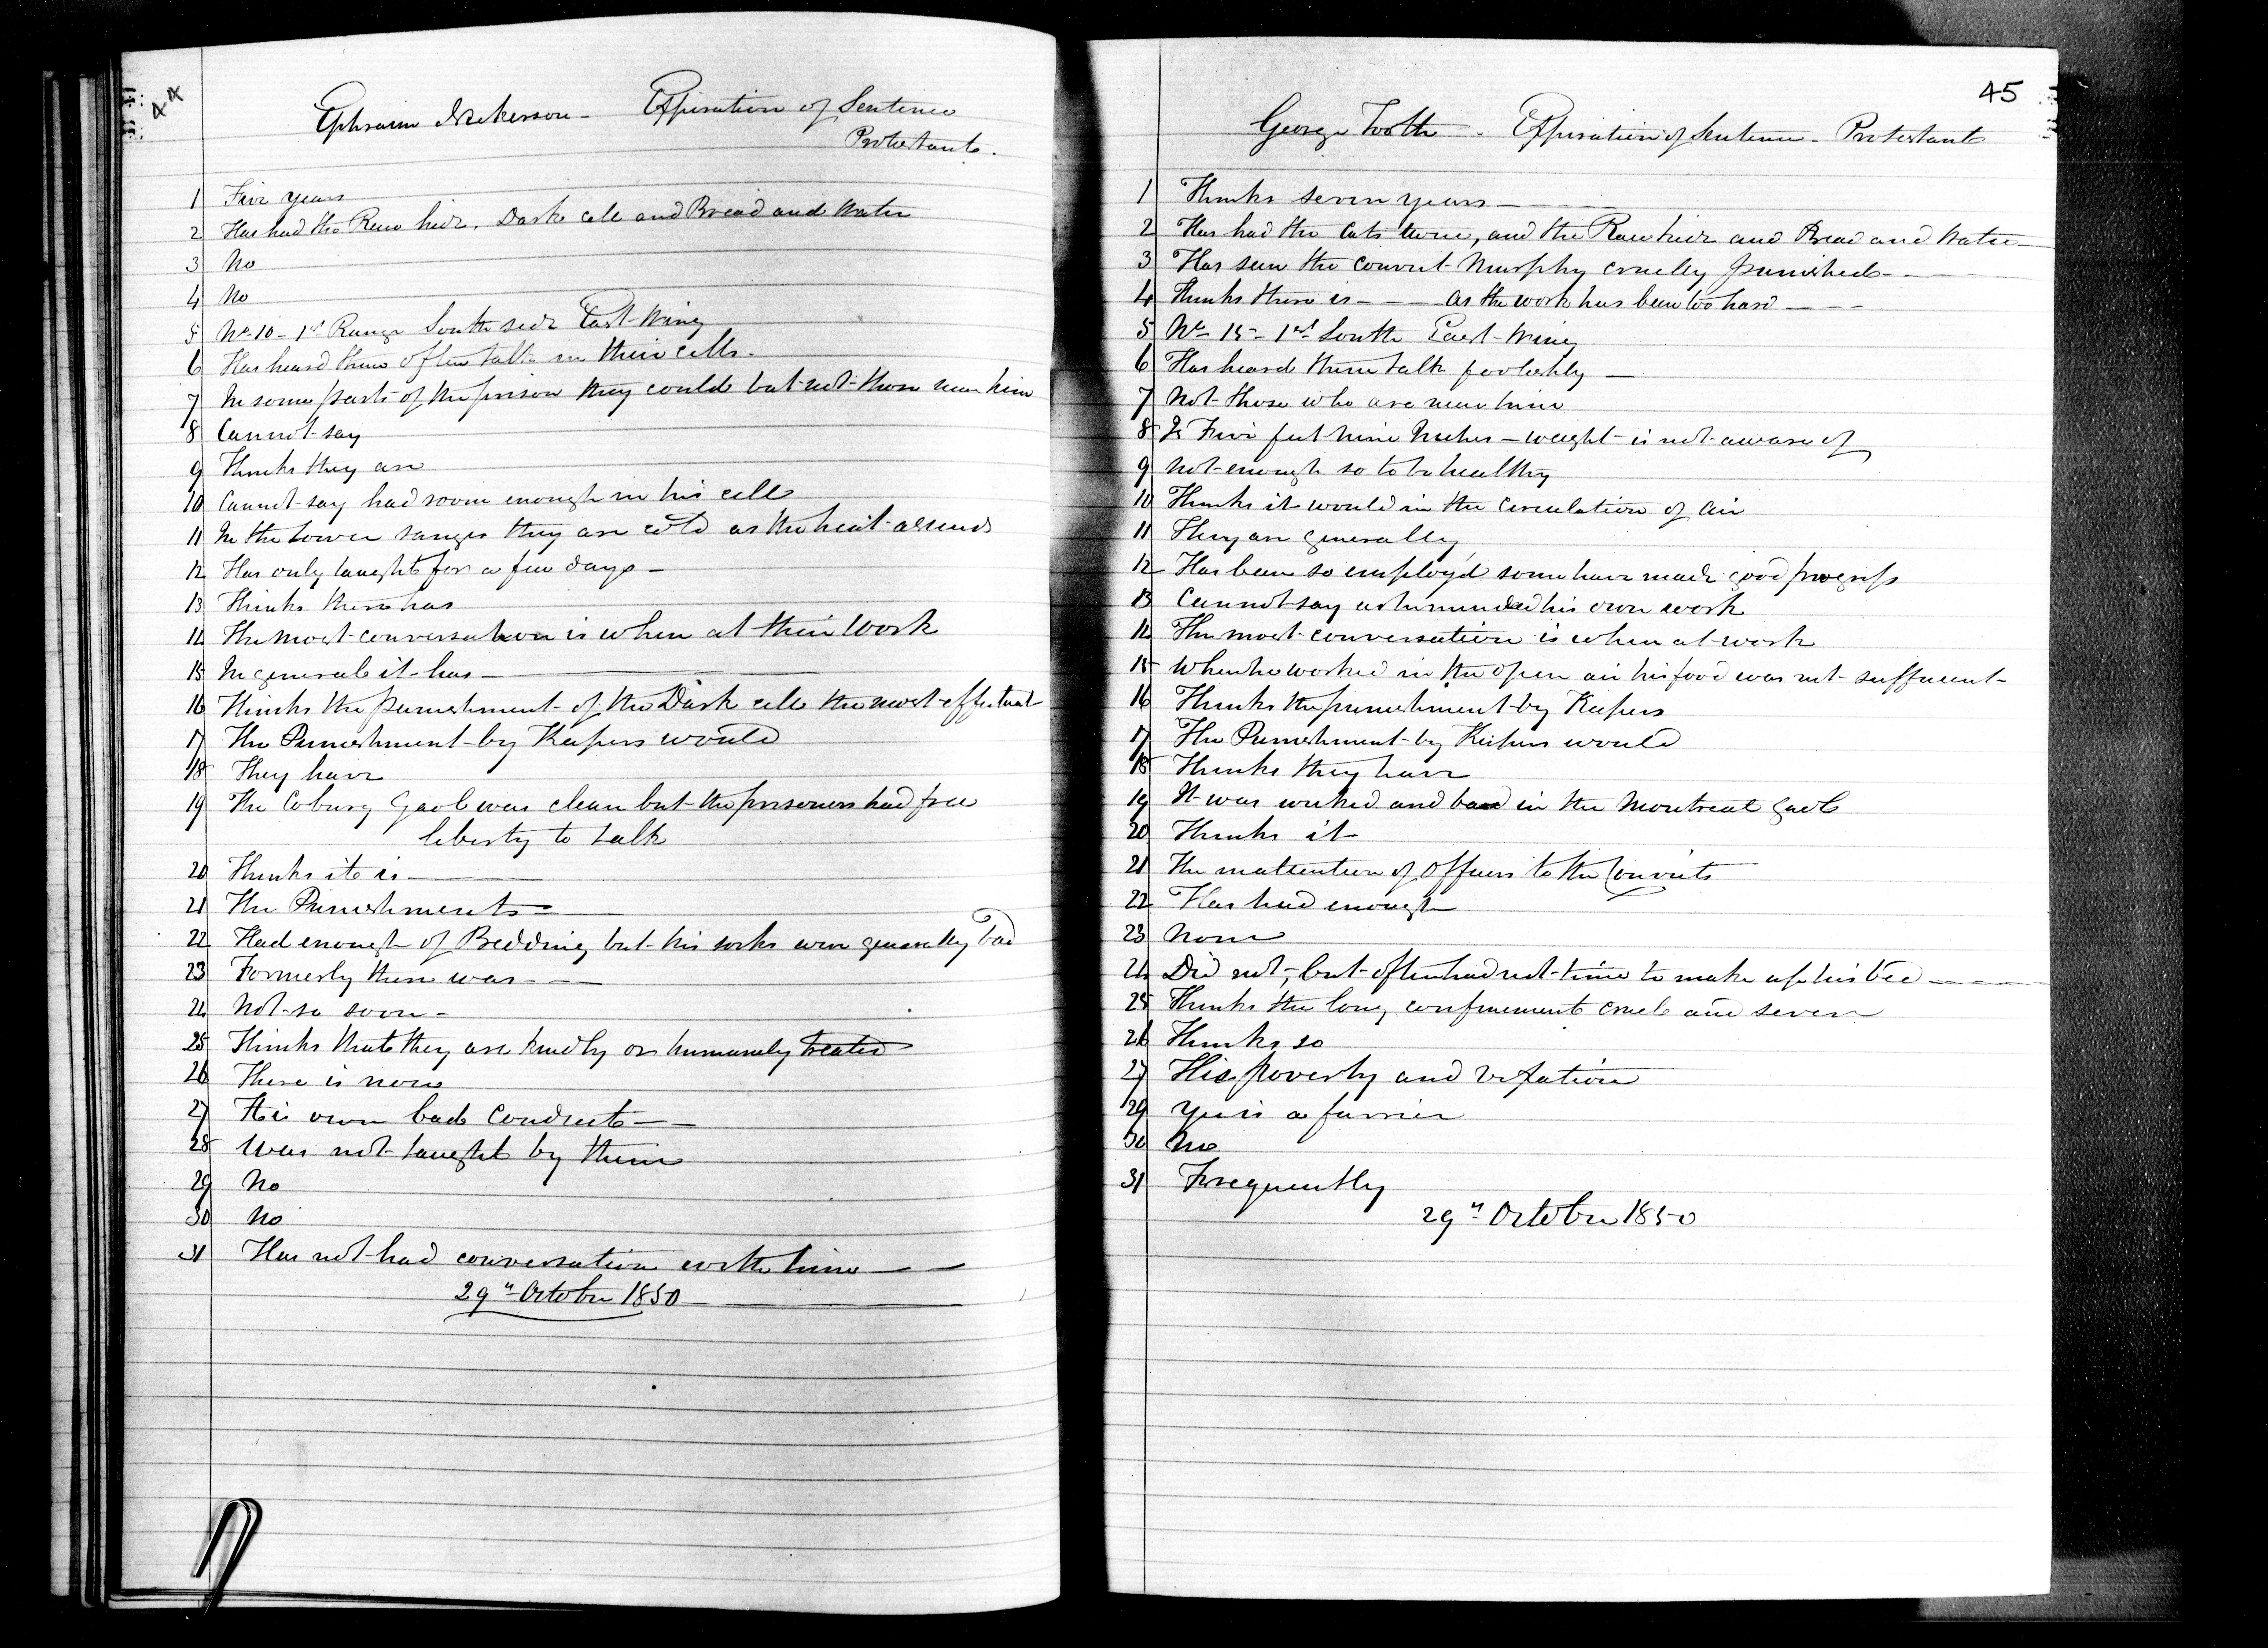 44
Ephraim Nickerson - Expiration of Sentence
Protestant.
1 Five years
2 Has had the Raw hide, Dark cell and Bread and Water
3 No
4 No
5 No. 10 - 1st Range South side East Wing
6 Has heard them often talk in their cells.
7 In some parts of the prison they could but not those near him
8 Cannot say
9 Thinks they are
10 Cannot say had room enough in his cell
11 In the Lower ranges they are cold as the heat ascends
12 Has only taught for a few days -
13 Thinks there has
14 The most conversation is when at their work
15 In general it has -
16 Thinks the punishment of the Dark cell the most effectual
17 The Punishment by Keepers would
18 They have
19 The Coburg Gaol was clean but the prisoners had free
liberty to talk
20 Thinks it is -
21 The Punishments -
22 Had enough of Bedding but his socks were generally bad
23 Formerly there was -
24 Not so soon -
25 Thinks that they are kindly or humanely treated
26 There is none
27 His own bad Conduct -
28 Was not taught by them
29 No
30 No
31 Has not had conversation with him -
29th October 1850
45
George Tooth - Expiration of Sentence - Protestant
1 Thinks seven years -
2 Has had the Cats twice, and the Raw hide and Bread and Water
3 Has seen the convict Murphy cruelly punished -
4 Thinks there is - as the work has been too hard -
5 No. 15 - 1st South East Wing
6 Has heard them talk foolishly -
7 Not those who are near him
8 Is Five feet nine Inches - weight is not aware of
9 Not enough so to be healthy
10 Thinks it would in the circulation of air
11 They are generally
12 Has been so employ'd some have made good progress
13 Cannot say as he minded his own work
14 The most conversation is when at work
15 When he worked in the open air his food was not sufficient -
16 Thinks the punishment by Keepers
17 The Punishment by Keepers would
18 Thinks they have
19 It was wicked and bad in the Montreal Gaol
20 Thinks it
21 The inattention of Officers to the Convicts
22 Has had enough
23 None
24 Did not, but often had not time to make up his bed -
25 Thinks the long confinement cruel and severe
26 Thinks so
27 His poverty and vexation
29 Yes is a farrier
30 No
31 Frequently
29th October 1850